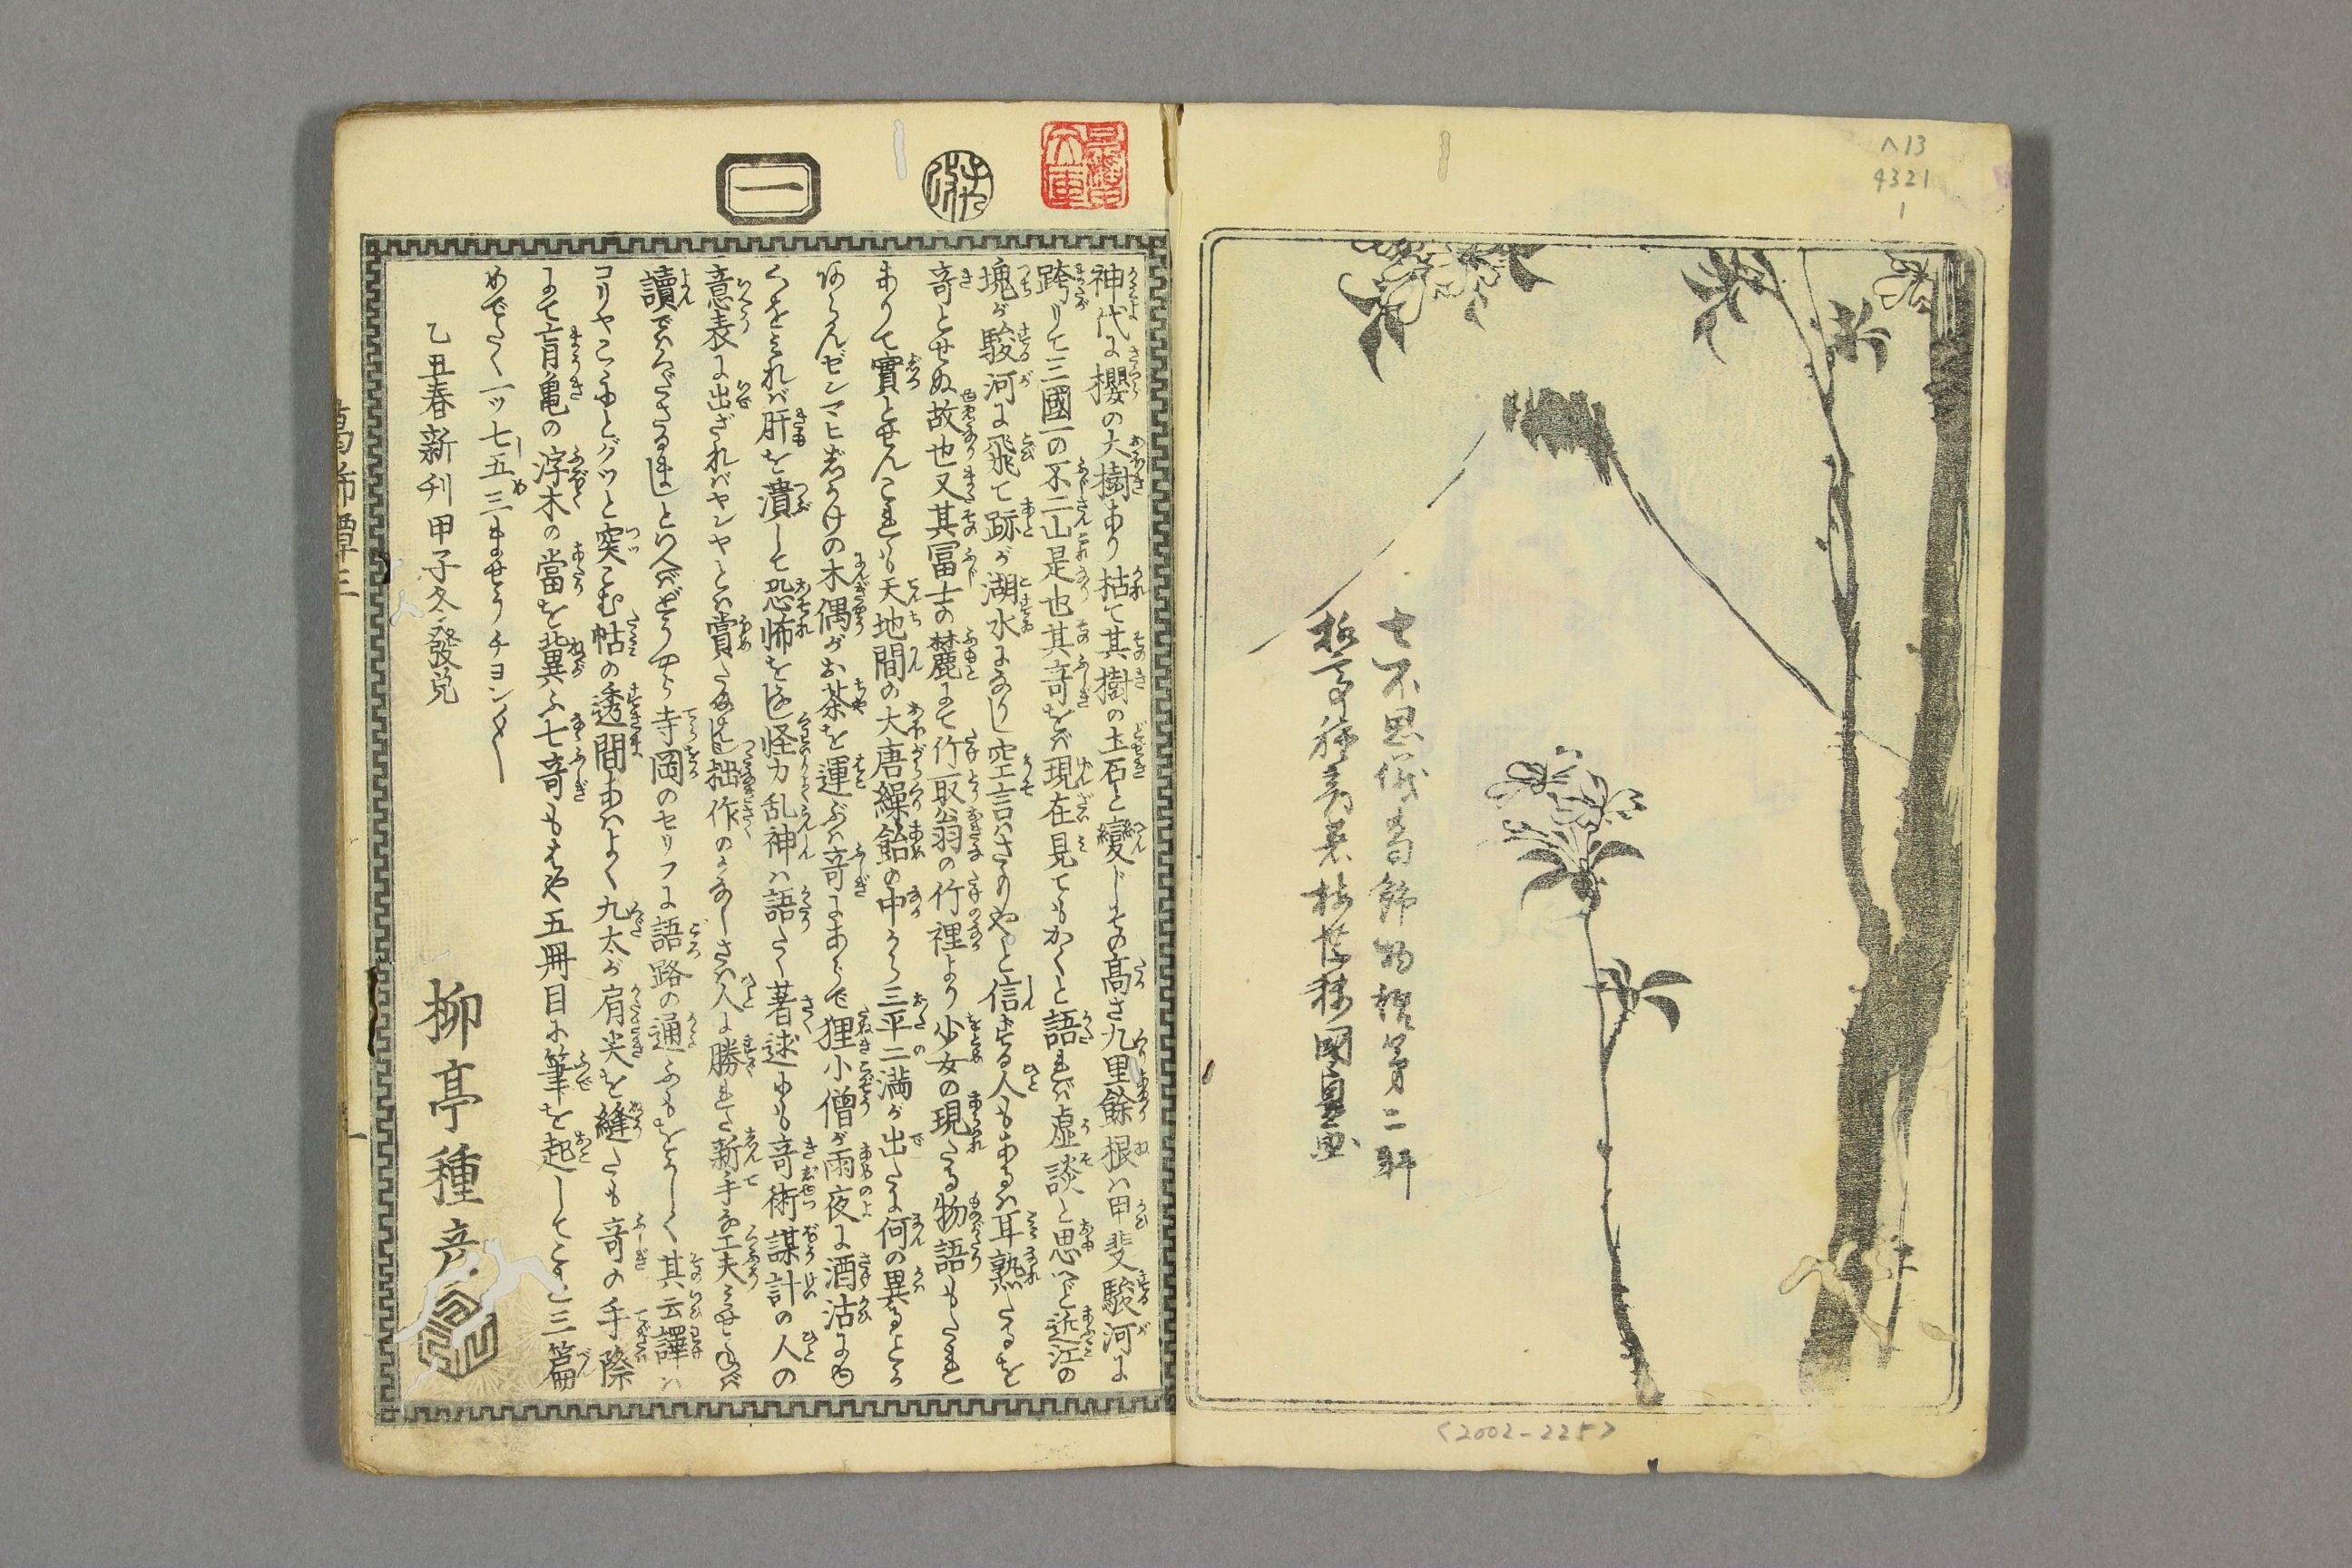 ヘ13
4321
1
七不思議葛飾物語第二輯
柳亭種彦著 梅蝶樓國貞画
<2002-225>
一
神代に櫻の大樹あり枯て其樹の土石と變じその高さ九里餘根ハ甲斐駿河に
跨りて三國一の不二山是也其奇をバ現在見てもかくと語れバ虚談と思へど近江の
塊が駿河に飛て跡が湖水になりし空言ハさのやと信ずる人もあるハ耳熟たるを
奇とせぬ故也又其冨士の麓にて竹取翁の竹裡より少女の現たる物語もたれ
ありて實とせんこれも天地間の大唐繰飴の中から三平二満が出たに何の異るとか
あらんゼンマヒ志かけの木偶がお茶を運ぶハ奇にあらで狸小僧が雨夜に酒沽にゆ
くをみれバ肝を潰して恐怖をなし怪力乱神ハ語たく著述ゆゑも奇術謀計の人の
意表に出ざればヤンヤとハ賞たまハじ拙作のかなしさハ人に勝れた新手な工夫ミせねバ
讀でハくださるまじとハ人がどうやら寺岡のセリフに語路の通ふもをかしく其云譯ハ
コリヤこゝにとグツと突こむ帖の透間あハよく九太が肩尖を縫たも奇の手際
にて盲亀の浮木の當を冀ふ七奇もはや五冊目に筆を起してこゝに三篇
めでたく一ッ七五三ませうチヨン〳〵
乙丑春新刊甲子冬發兌
柳亭種彦
葛飾譚三
一